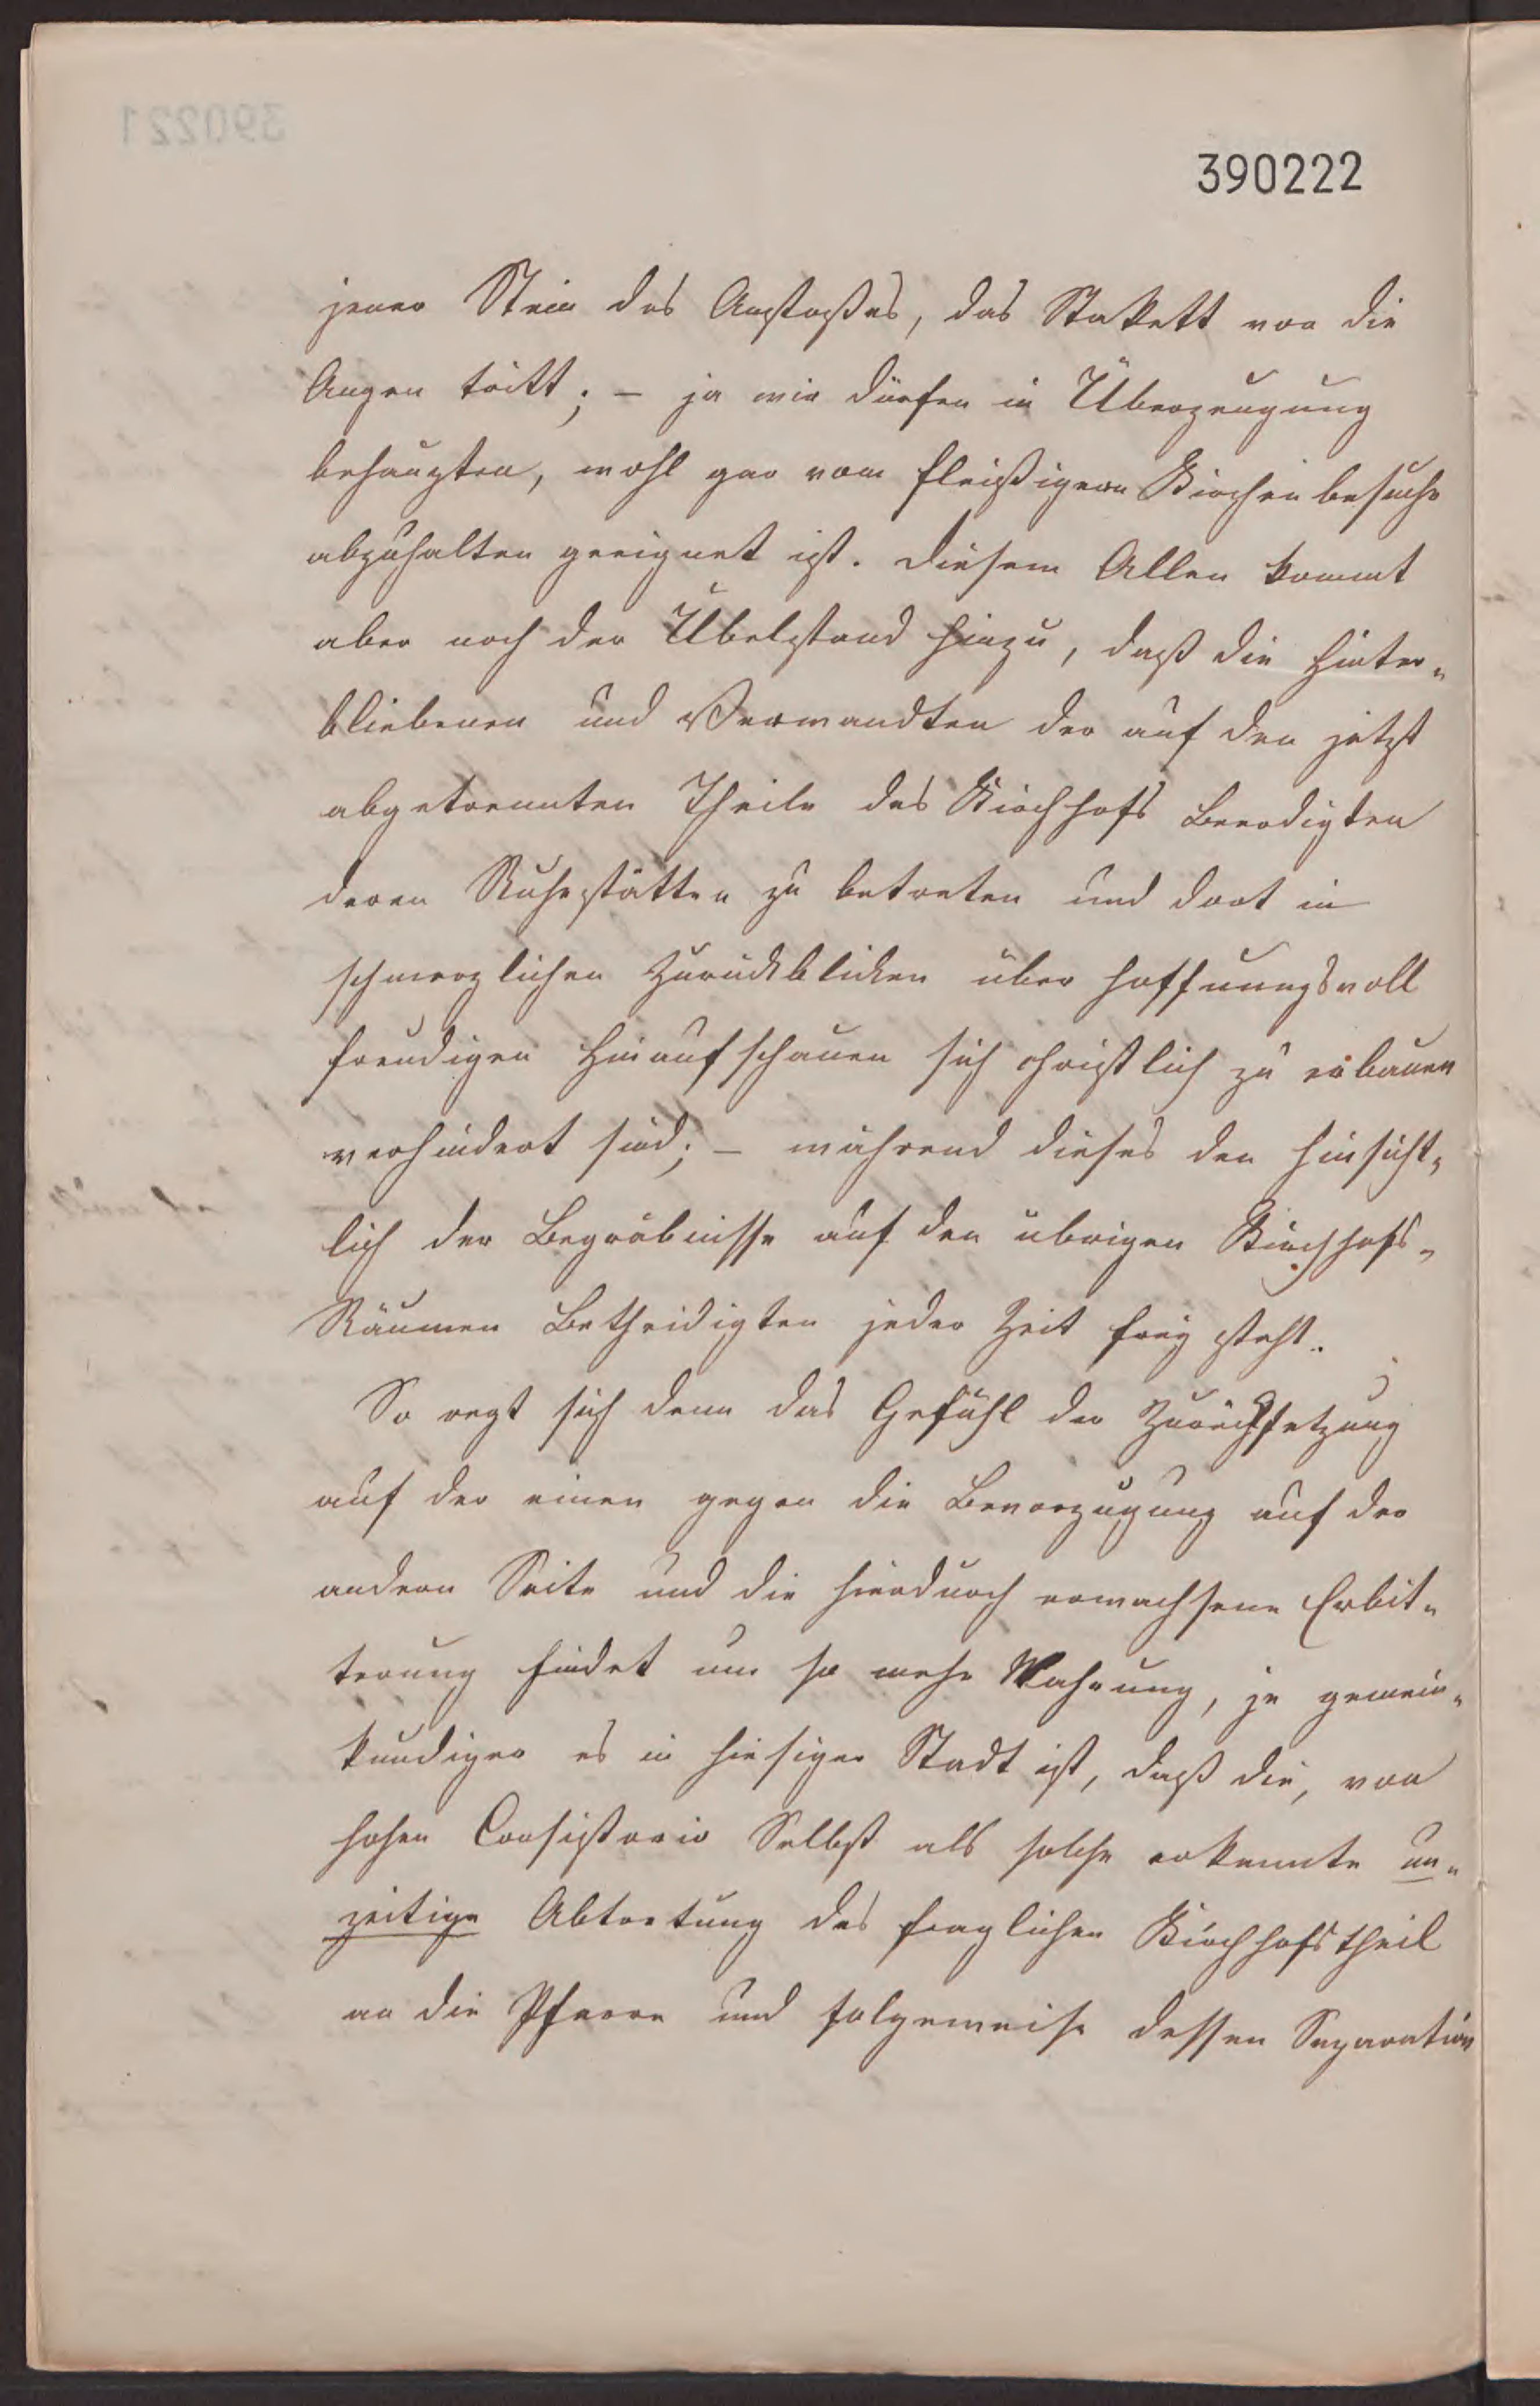 390222
jener Stein des Anstoßes, das Stakett vor die
Augen tritt; – ja wir dürfen in Überzeugung
behaupten, wohl gar vom fleißigern Kirchenbesuche
abzuhalten geeignet ist. Diesem Allen kommt
aber noch der Übelstand hinzu, daß die Hinter-
bliebenen und Verwandten der auf den jetzt
abgetrennten Theile des Kirchhofs Beerdigten
deren Ruhestätten zu betreten und dort in
schmerzlichen Zurückblicken über hoffnungsvoll
freudigen Hinaufschauen sich christlich zu erbauen
verhindert sind; – während dieses den hinsicht-
lich der Begräbnisse auf den übrigen Kirchhofs-
Räumen Betheidigten jeder Zeit frey steht.
So regt sich denn das Gefühl der Zurücksetzung
auf der einen gegen die Bevorzugung auf der
andern Seite und die hierdurch erwachsene Erbit-
terung findet um so mehr Nahrung, je gemein-
kundiger es in hiesiger Stadt ist, daß die, von
hohen Consistorio Selbst als solche erkannte un-
zeitige Abtretung des fraglichen Kirchhofstheil
an die Pfarre und folgeweise dessen Separation
390221